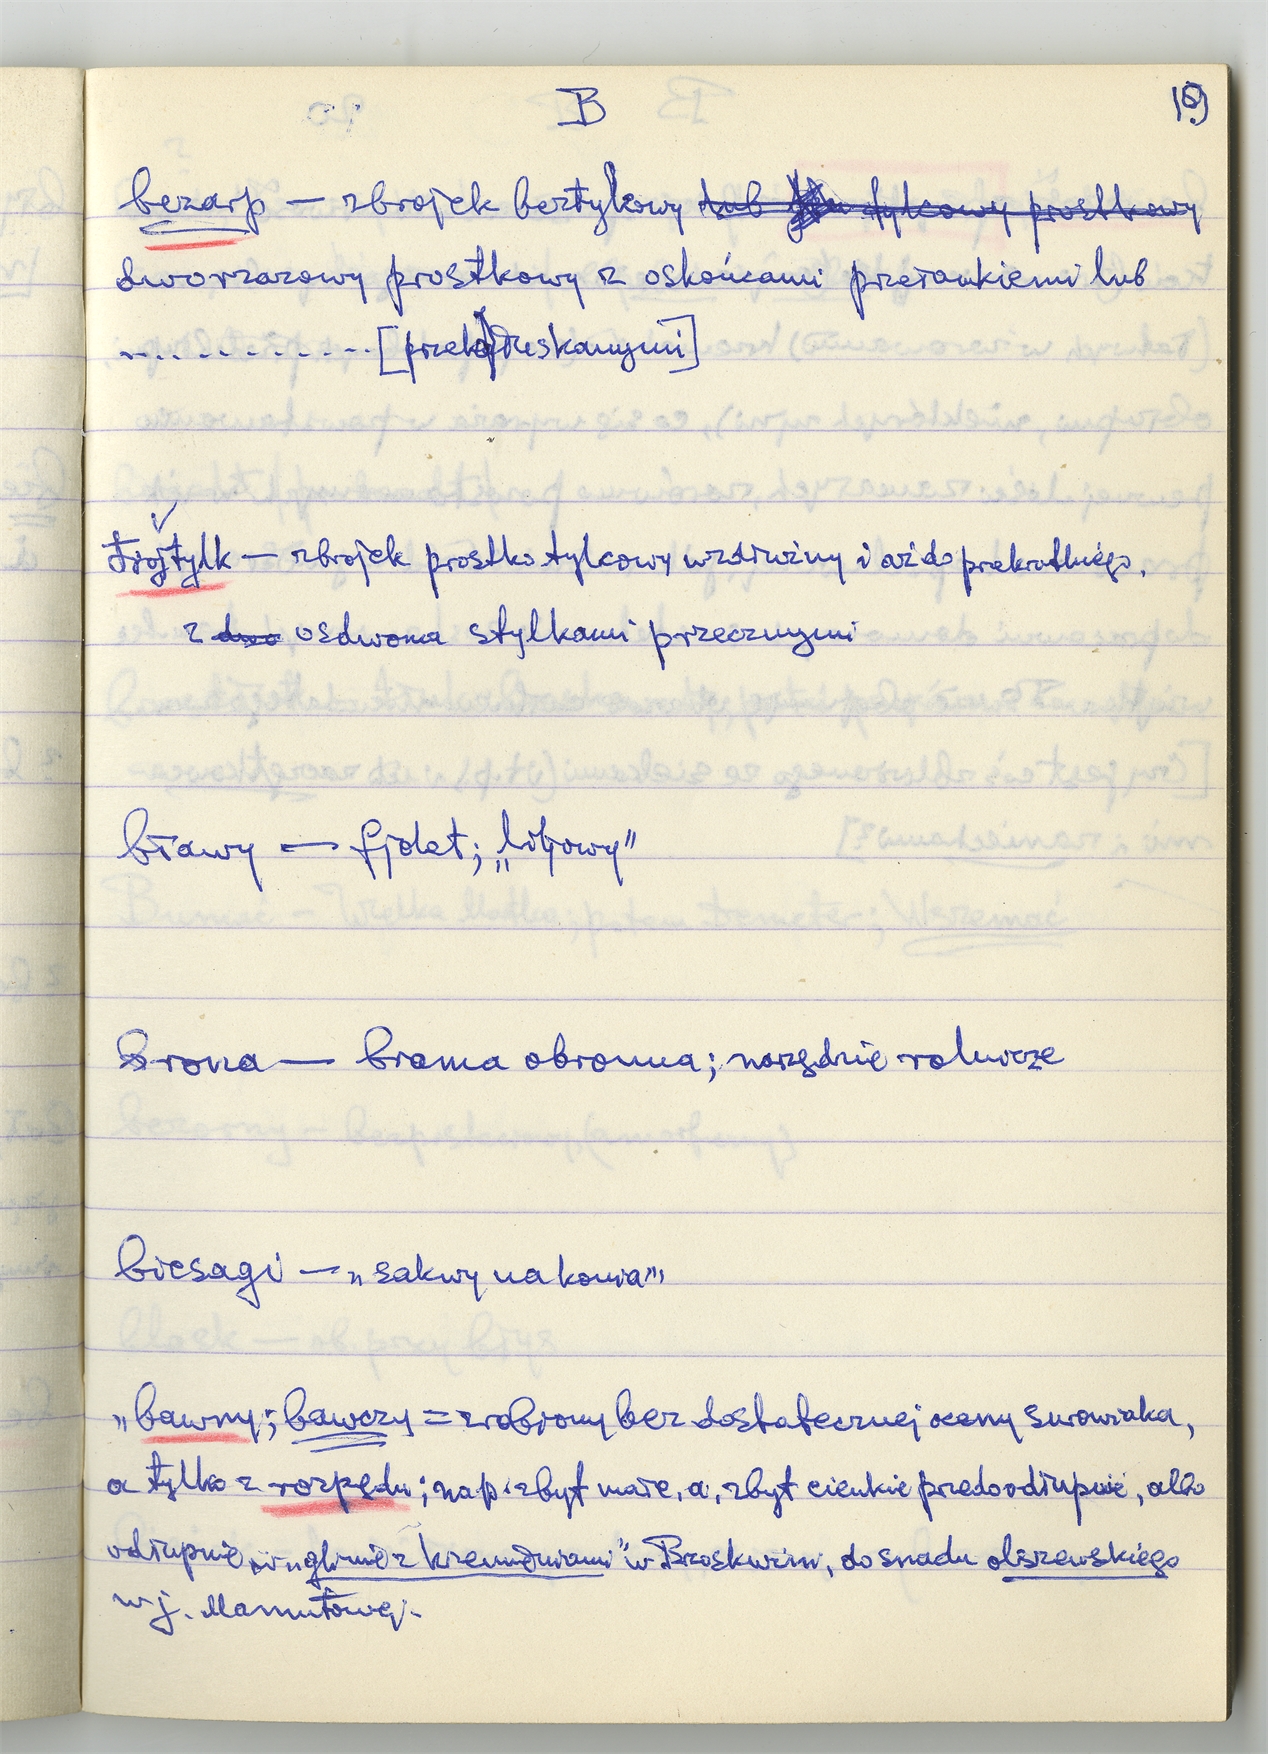 B 19
bezarp — zbrojek beztylcowy lub tylcowy prostkowy
dworzazowy prostkowy z oskońcami przerankiemi lub
............ [przekłuskanymi]
trójtylk — zbrojek prostko tylcowy wzdłużny i aż do prekrótkiego,
z dwo osdwoma stylkami przecznymi
bławy — fjolet; „liljowy”
brona — brama obronna; narzędzie rolnicze
biesagi — „sakwy na konia”
„bawny; bawczy = zrobiony bez dostatecznej oceny surowiaka,
a tylko z rozpędu; nap. zbyt małe, a, zbyt cienkie przedoodłupnie, albo
odłupnie w „glinie z krzemieniami” w Brzoskwini, do snadu olszewskiego
w j. Mamutowej.